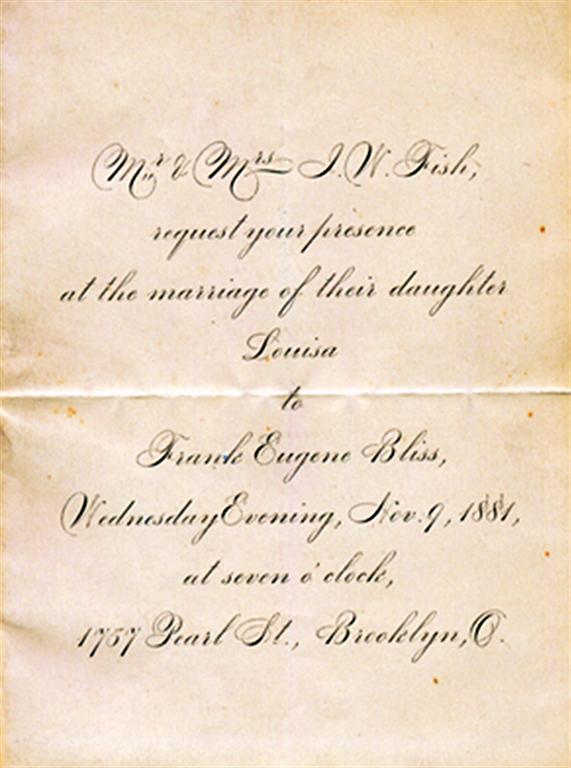 Mr & Mrs J. W. Fish,
request your presence
at the marriage of their daughter
Louisa
to
Frank Eugene Bliss,
Wednesday Evening, Nov. 9, 1881,
at seven o'clock,
1757 Pearl St., Brooklyn, O.